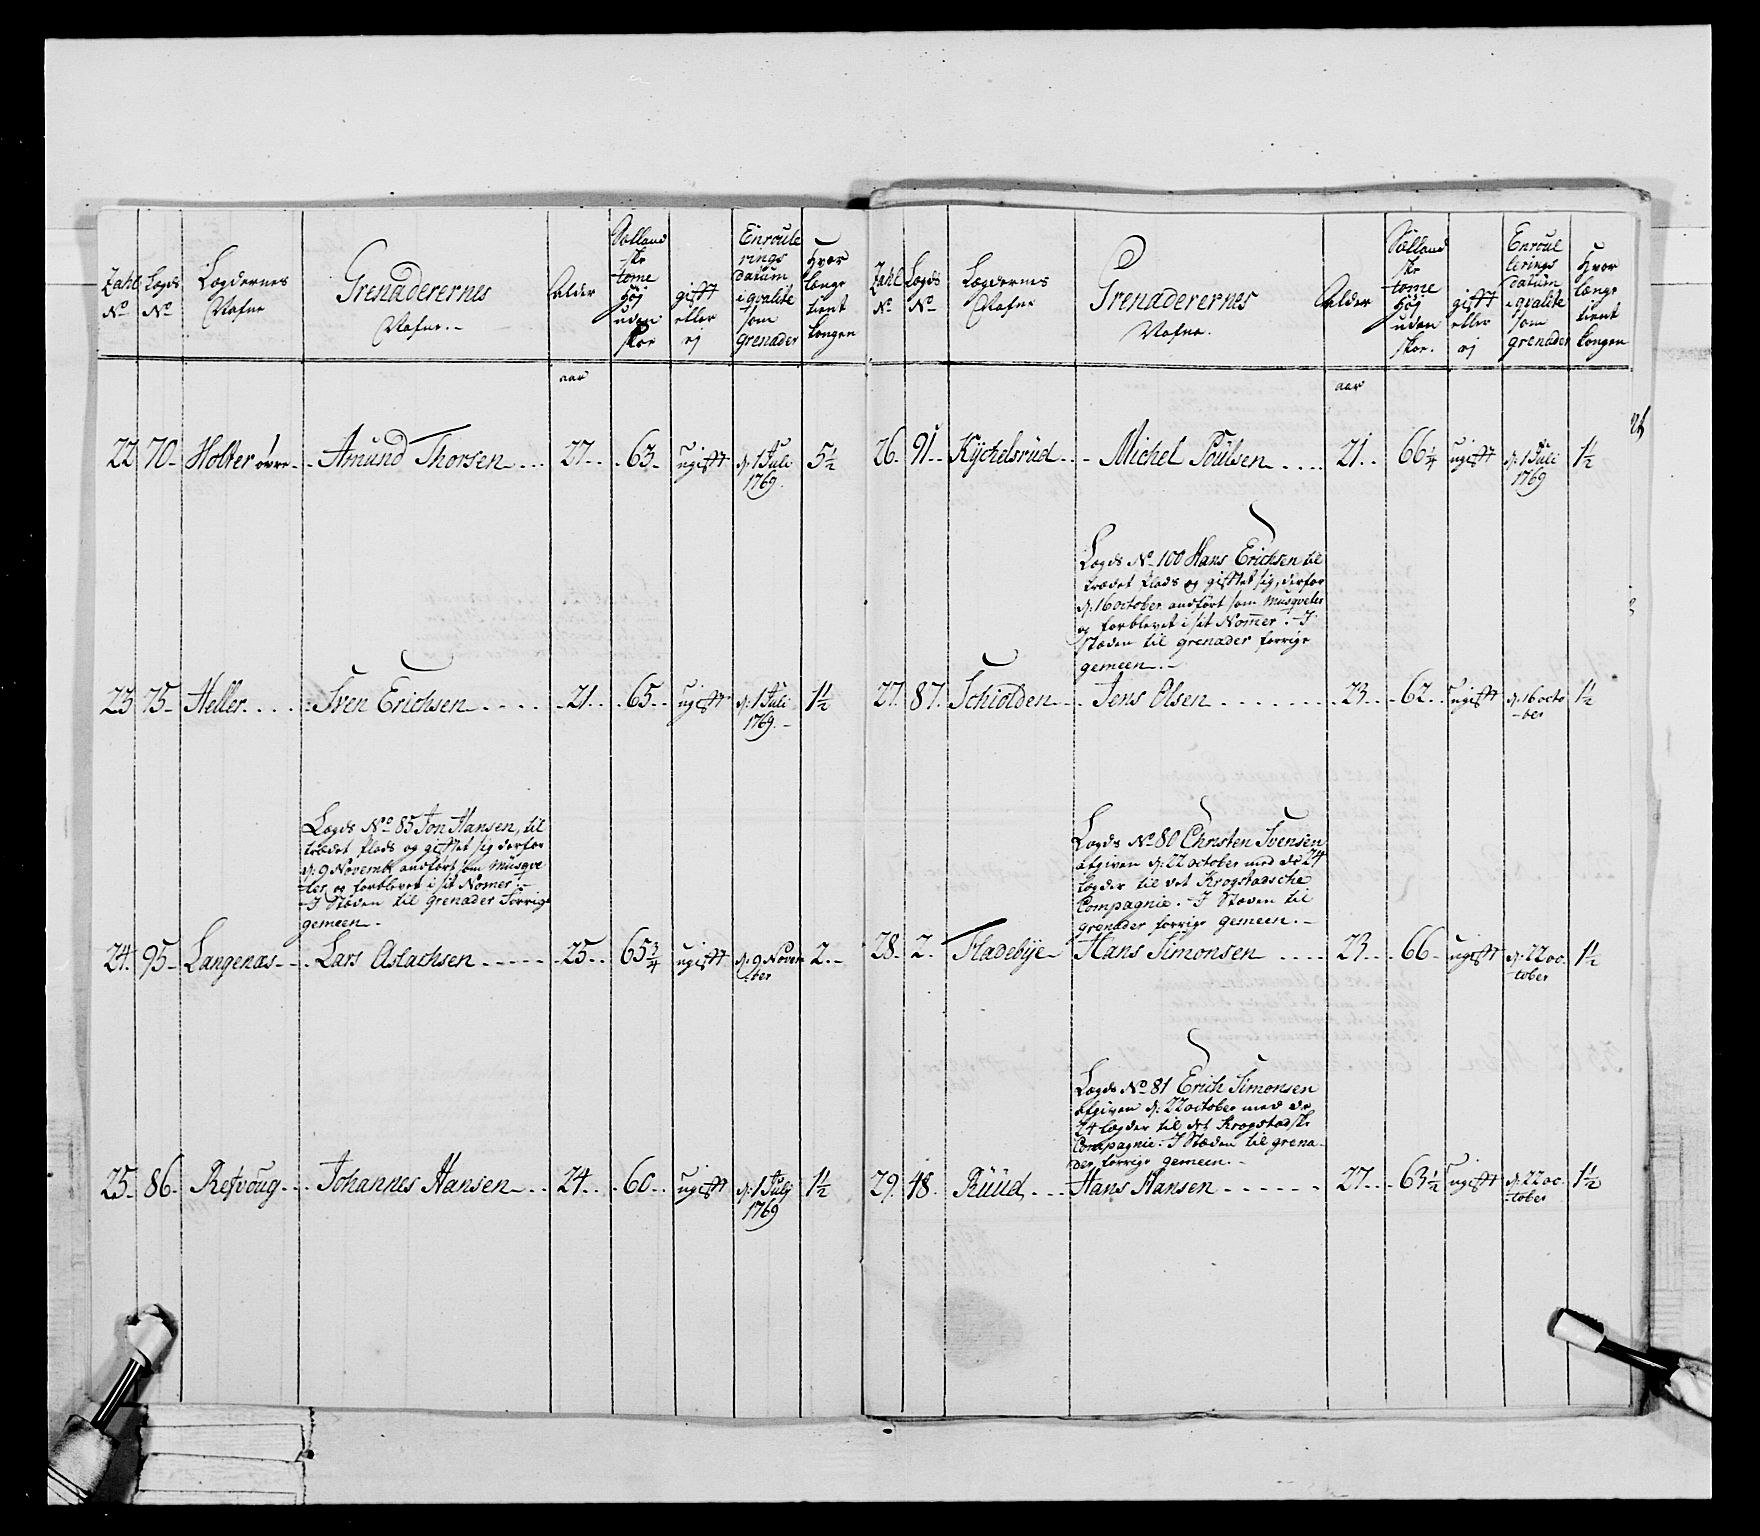 Zahl No
Lægds No
Lægdernes Nafne
Grenaderernes Nafne.
Alder
Sællandske tomme høj uden skoe
gifft eller ej
Enroulerings Datum i qvalite som grenader
Hvor længe tient kongen
aar
22 70 Holter øvre Amund Thorsen 27 63 ugifft d: 1 Juli 1769 5½
23 75 Heller Sven Erichsen 21 65 ugifft d: 1 Juli 1769 1½
Lægds No 85 Jon Hansen, til
trædet plads og gifftet sig derfor
d: 9 Novemb anført som Musqve
ter og forblevet i sit Nomer
I Stæden til grenader forrige
gemeen
24 95 Langenæs Lars Aslachsen 25 65¾ ugifft d: 9 November 2
25 86 Refvoug Johannes Hansen 24 60 ugifft d: 1 July 1769 1½
Zahl No
Lægds No
Lægdernes Nafne
Grenaderernes Nafne.
Alder
Sællandske tomme høj uden skoe.
gifft eller ej
Enroullerings Datum i qvalite som grenader
Hvor længe tient kongen
aar
26 91 Kychelsrüd Michel Poülsen 21 66¼ ugifft d: 1 Juli 1769 1½
Lægds No 100 Hans Erichsen til
trædet plads og gifftet sig, derfor
d: 16 october anført som Musqveter
og forblevet i sit Nomer. I
stæden til grenader forrige
gemeen
27 87 Schiolden Jens Olsen 23 62 ugifft d: 16 october 1½
Lægds No 80 Christen Svensen
afgiven d: 22 october med de 24
Lægder til det Krogstadsche
Compagnie. I Stæden til
grenader forrige gemeen.
28 2 Fladebÿe Hans Simonsen 23 66 ugifft d: 22 october 1½
Lægds No 81 Erich Simonsen
afgiven d: 22 october med de
24 lægder til det Krogstadske
Compagnie. I Stæden til grena
der forrige gemeen.
29 48 Rüüd Hans Hansen 27 63½ ugifft d: 22 october 1½